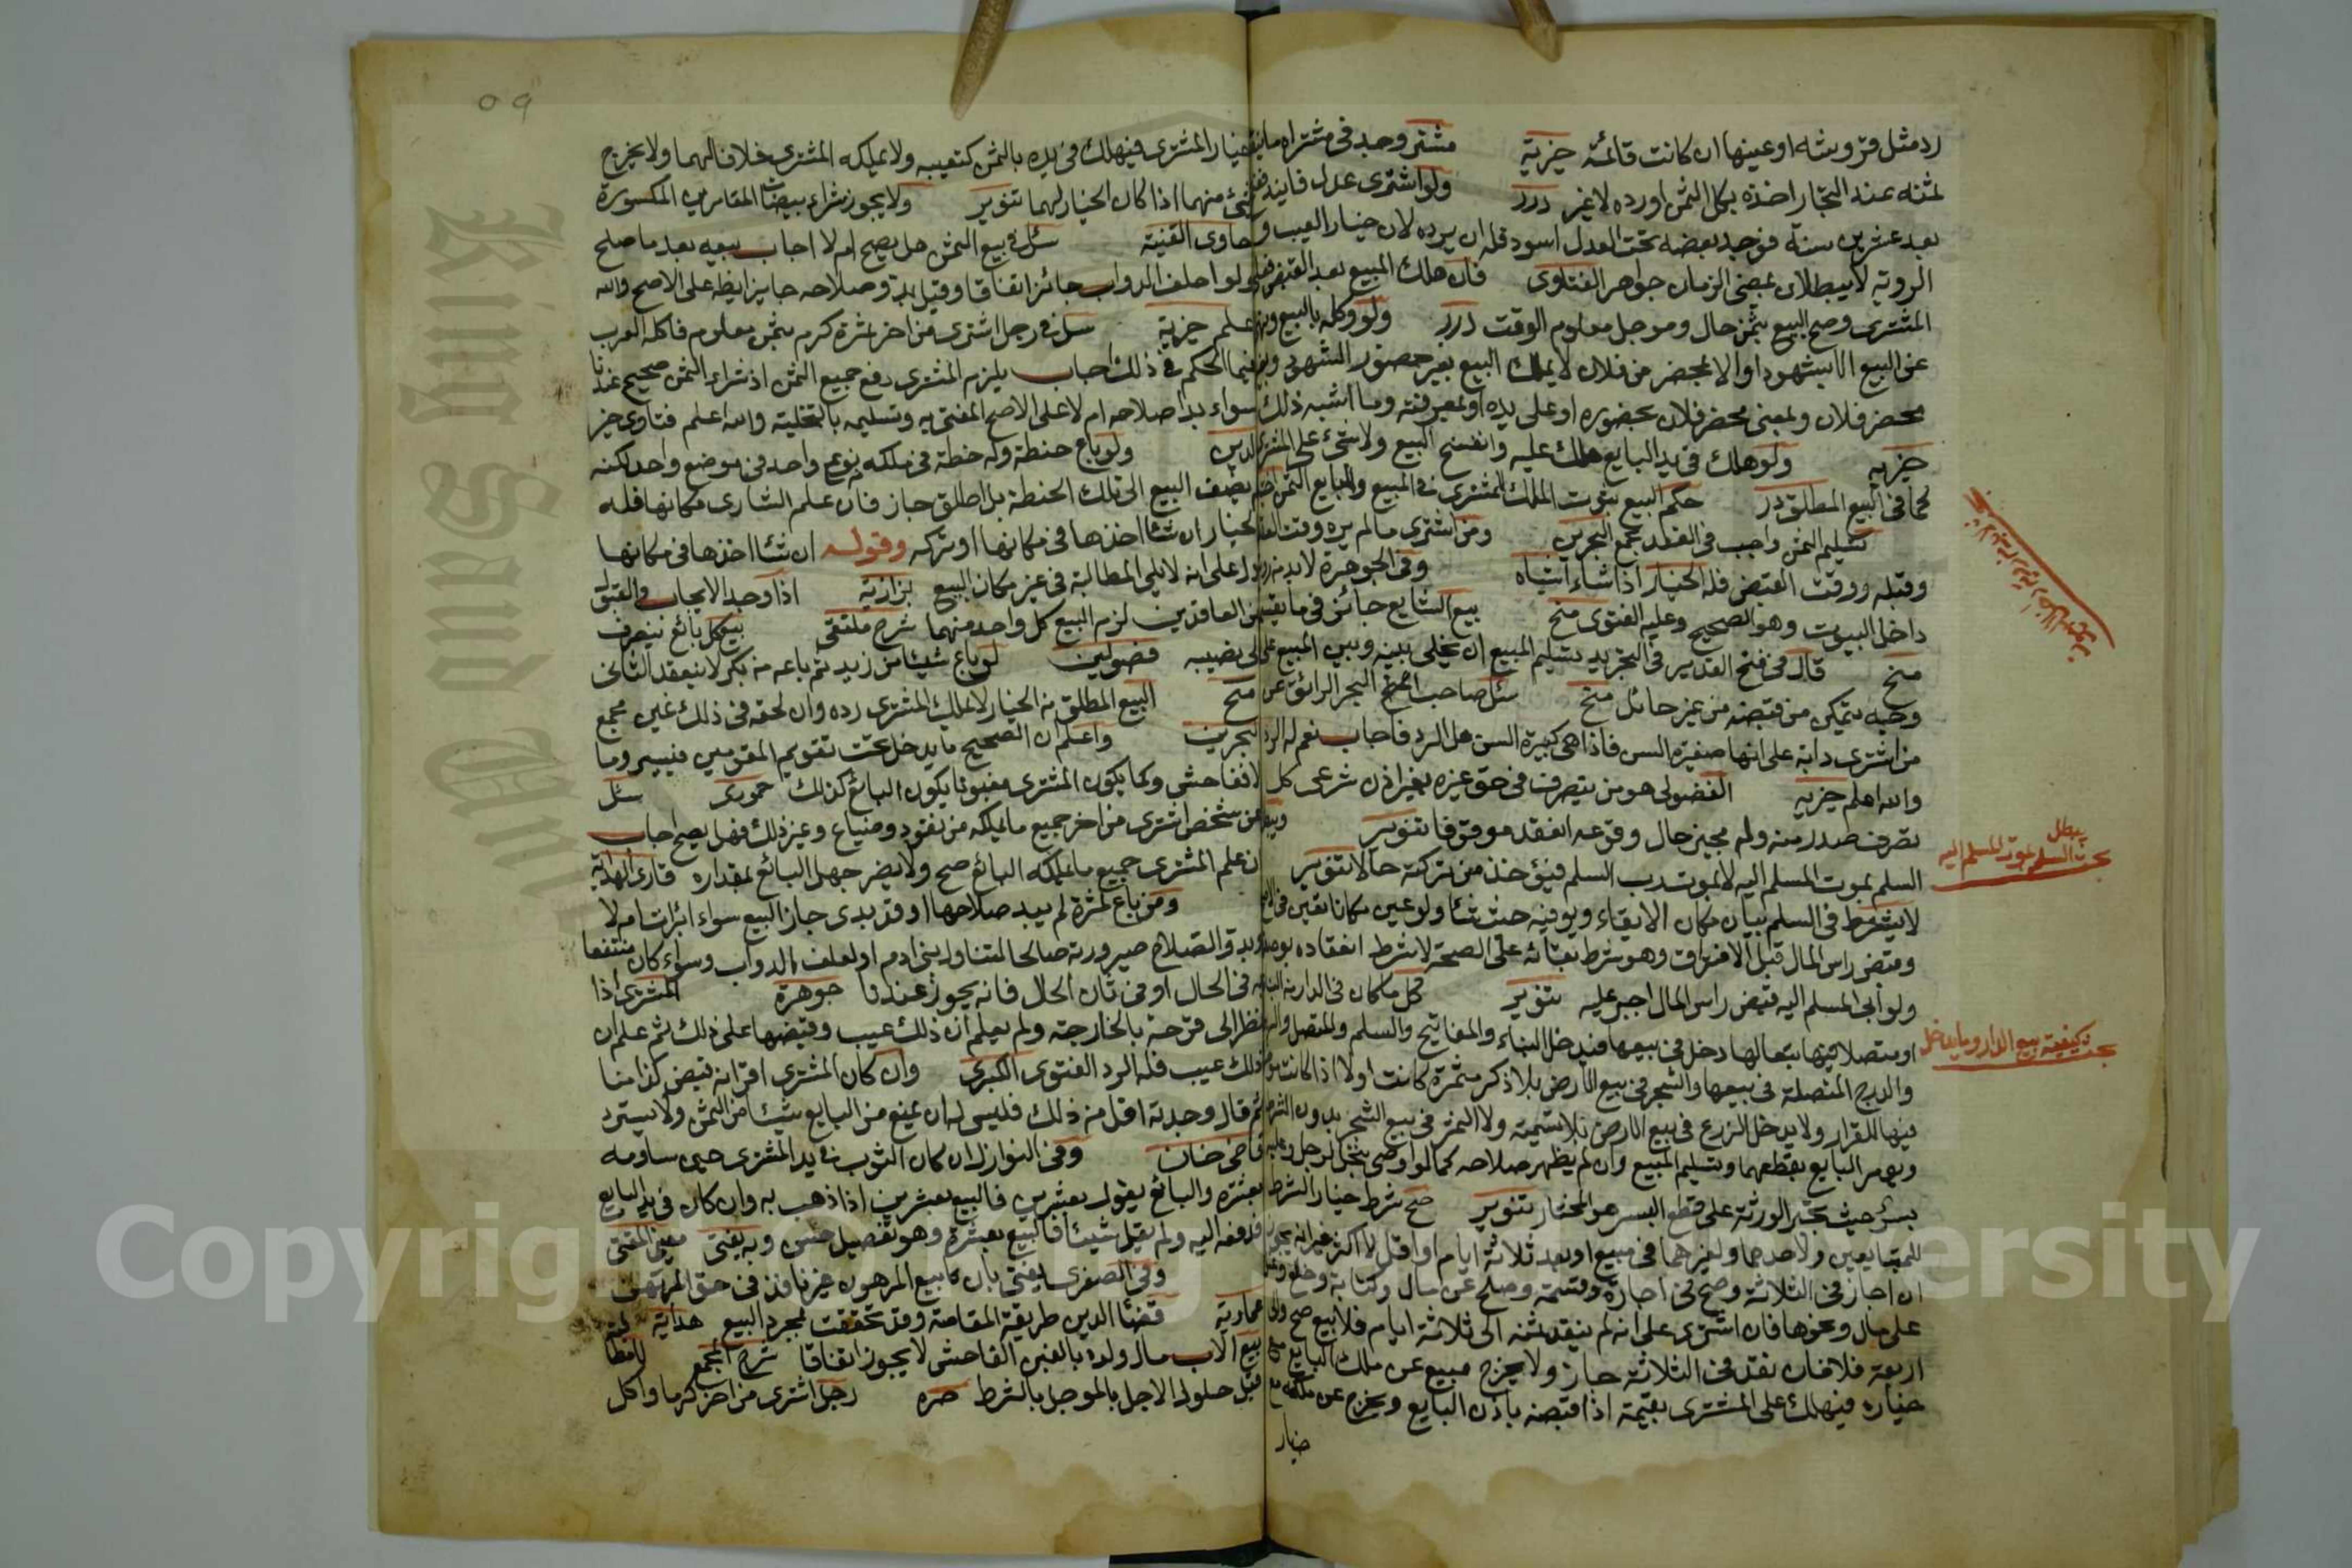 رد مثل قروشه او عينها ان كانت قائمة خيرية مشتر وجد في مشتراه ما
لمثنه عند التجار اخذه بكل الثمن او رده لا غير درر ولو اشترى عدل
بعد عشرين سنة فوجد بعضه تحت العدل اسود فله ان يرده لان خيار العيب و
الروية لا يبطلان بمضي الزمان جواهر الفتاوى فان هلك المبيع بعد القبض
المشترى وصح البيع بثمن حال وموجل معلوم الوقت درر ولو وكله بالبيع
عن البيع الا بشهود او الا بمحضر من فلان لا يملك البيع بغير حضور الشهود
محضر فلان ولمعنى محضر فلان بحضوره او على يده او لمعرفته وما اشبه ذلك
خيريه ولو هلك في يد البايع هلك عليه وانفسخ البيع ولا شيء على المشترى
كما في البيع المطلق درر حكم البيع ثبوت الملك للمشترى في المبيع وللبايع الثمن
تسليم الثمن واجب في العقد مجمع البحرين ومن اشترى ما لم يره وقت
وقبله ووقت القبض فله الخيار اذا شاء اشباه وفي الجوهرة لا بد من
داخل البيوت وهو الصحيح وعليه الفتوى منح بيع الشايع جائز في ما
منح قال في فتح القدير في التجريد تسليم المبيع ان يخلى بينه وبين المبيع على
وجه يتمكن من قبضه من غير حائل منح سئل صاحب البحر الرائق عن
من اشترى دابة على انها صغيرة السن فاذا هي كبيرة السن هل الرد فاجاب نعم له الرد
والله اعلم خيريه الفضولى هو من يتصرف في حق غيره بغير اذن شرعى كل
تصرف صدر منه وله مجيز حال وقوعه انعقد موقوفا تنوير
السلم بموت المسلم اليه لا بموت رب السلم فيؤخذ من تركته حالا تنوير
لا يشترط في السلم بيان مكان الايفاء ويوفيه حيث شا ولو عين مكانا تعين
وقبض راس المال قبل الافتراق وهو شرط بقائه على الصحة لا شرط انعقاده
ولو ابى المسلم اليه قبض راس المال اجبر عليه تنوير كل ما كان في الدار
او متصلا بها تبعا لها دخل في بيعها فيدخل البناء والمفاتيح والسلم والمتصل
والدرج المتصلة في بيعها والشجر في بيع الارض بلا ذكر مثمرة كانت اولا اذا كانت
فيها للقرار ولا يدخل الزرع في بيع الارض بلا تسمية ولا الثمر في بيع الشجر بدون الشرط
ويومر البايع بقطعهما وتسليم المبيع وان لم يظهر صلاحه كما لو اوصى بنخل لرجل
بسر حيث تجبر الورثة على قطع البسر هو المختار تنوير صح شرط خيار الشرط
للمتبايعين ولاحدهما ولغيرهما في مبيع او بعضه ثلاثة ايام او اقل لا اكثر غير انه يجوز
ان اجاز في الثلاثة وصح في اجارة وقسمة وصلح عن مال وكتابة وخلع
على مال ونحوها فان اشترى على انه لم ينقد ثمنه الى ثلاثة ايام فلا بيع صح والى
اربعة فلا فان نقد في الثلاثة جاز ولا يخرج مبيع عن ملك البايع مع
خياره فيهلك على المشترى بقيمة اذا قبضه باذن البايع ويخرج عن ملكه مع
خيار
يبطل
بحث السلم بموت المسلم اليه
بحث كيفية بيع الدار وما يدخل
٥٩
خيار المشترى فيهلك في يده بالثمن كتعيبه ولا يملكه المشترى خلافا لهما ولا يخرج
شيء منهما اذا كان الخيار لهما تنوير ولا يجوز شراء بيضات المقامرين المكسورة
حاوى القنية سئل في بيع الثمن هل يصح ام لا اجاب بيعه بعد ما صلح
ولو لعلف الدواب جائز اتفاقا وقبل بدو صلاحه جايز ايضا على الاصح والله
اعلم خيرية سئل في رجل اشترى من اخر ثمرة كرم بثمن معلوم فاكله العرب
فما الحكم في ذلك اجاب يلزم المشترى دفع جميع الثمن اذ شراء الثمن صحيح عندنا
سواء بدا صلاحه ام لا على الاصح المفتى به وتسليمه بالتخلية والله اعلم فتاوى خير
الدين ولو باع حنطة وله حنطة في ملكه نوع واحد في موضع واحد لكنه
يضف البيع الى تلك الحنطة بل اطلق جاز فان علم الشارى مكانها فله
الخيار ان شا اخذها في مكانها او تركه وقوله ان شا اخذها في مكانها
دل على انه لا يلي المطالبة في غير مكان البيع بزازية اذا وجد الايجاب والقبول
من العاقدين لزم البيع كل واحد منهما شرح ملتقى بيع كل بائع ينصرف
الى نصيبه فصولين لو باع شيئا من زيد ثم باعه من بكر لا ينعقد الثانى
منح البيع المطلق من الخيار لا يملك المشترى رده وان لحقه في ذلك غبن مجمع
البحرين واعلم ان الصحيح ما يدخل تحت تقويم المقومين فيسير وما
لا ففاحش وكما يكون المشترى مغبونا يكون البائع كذلك حموى سئل
عن شخص اشترى من اخر جميع ما يملكه من نقود وضياع وغير ذلك فهل يصح اجاب
ان علم المشترى جميع ما يملكه البائع صح ولا يضر جهل البائع بمقداره قارى الهداية
ومن باع ثمرة لم يبد صلاحها او قد بدى جاز البيع سواء ابرات ام لا
وبدو الصلاح صيرورته صالحا لتناول بنى ادم او لعلف الدواب وسواء كان منتفعا
به في الحال او في ثان الحال فانه يجوز عندنا جوهرة المشترى اذا
نظر الى قرحة بالخارجة ولم يعلم ان ذلك عيب وقبضها على ذلك ثم علم ان
ذلك عيب فله الرد الفتوى الكبرى وان كان المشترى اقر انه قبض كذا منا
ثم قال وجدته اقل من ذلك فليس له ان يمنع من البايع شيئا من الثمن ولا يسترد
قاضى خان وفي النوازل ان كان الثوب في يد المشترى حين ساومه
بعشرة والبائع يقول بعشرين فالبيع بعشرين اذا ذهب به وان كان في يد البايع
فدفعه اليه ولم يقل شيئا فالبيع بعشرة وهو تفصيل حسن وبه يفتى معين المفتى
وفي الصغرى يفتى بان بيع المرهون غير نافذ في حق المرتهن
عمادية قضا الدين طريقة المقاصة وقد تحققت بمجرد البيع هداية
بيع الاب مال ولده بالغبن الفاحش لا يجوز اتفاقا شرح المجمع
قبل حلول الاجل بالموجل بالشرط رجل اشترى من اخر كرما واكل
Copyright © King Saud University
King Saud Uni